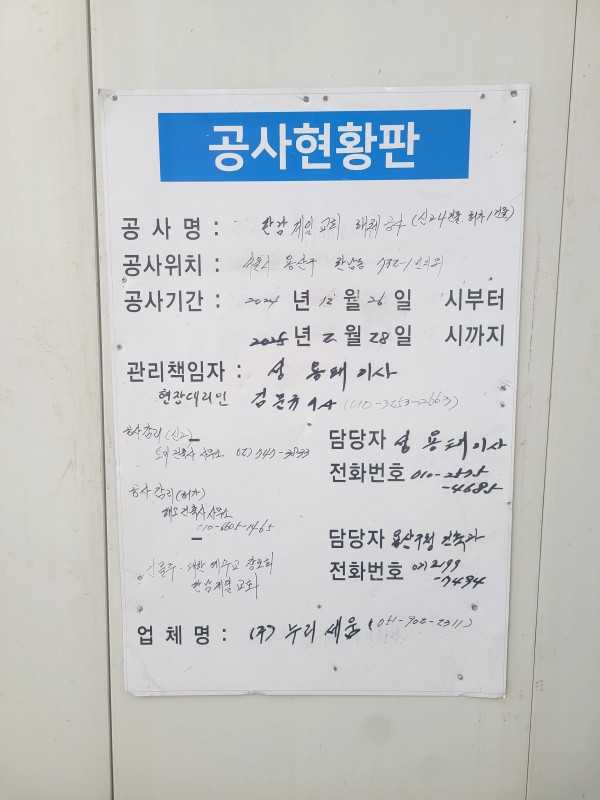 공사현황판
공 사 명 : 한남제일교회 해체공사 (신고4건물, 허가1건물)
공사위치 : 서울시 용산구 한남동 732-1번지외
공사기간 : 2024 년 12 월 26 일 시부터
2025 년 2 월 28 일 시까지
관리책임자 : 성 용태 이사
현장대리인 김 문규 이사 (010-3253-2663)
공사감리 (신고)
건축사 사무소 02) 747-3833
담당자 성 용태이사
전화번호 010-2575
-4685
공사감리 (허가)
건축사사무소
010-6605-1465
담당자 용산구청 건축과
전화번호 02) 2199
-7494
건물주 : 대한예수교 장로회
한남제일교회
업 체 명 : (주) 누리 세움 (051-902-2311)